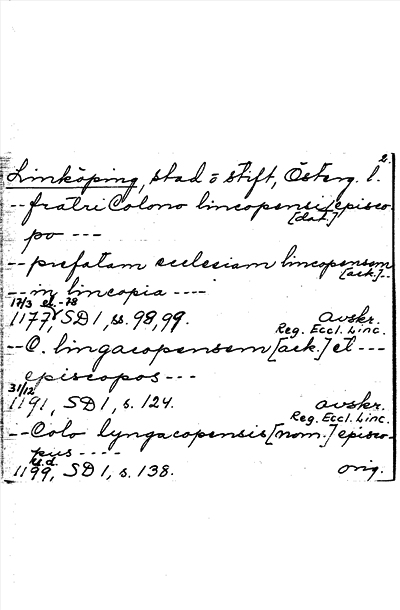 2.
Linköping, stad o stift, Österg. l.
-- fratri Colono lincopensi episco-
[dat.]
po ---
-- prefatam ecclesiam lincopensem
[ack.]--
-- in lincopia ----
17/3 el. -78
1177, SD 1, ss. 98, 99. avskr.
Reg. Eccl. Linc.
-- C. lingacopensem [ack.] et ---
episcopos ---
31/12
1191, SD 1, s. 124. avskr.
Reg. Eccl. Linc.
-- Colo lyngacopensis [nom.] episco-
pus ----
1199, SD 1, s. 138. orig.